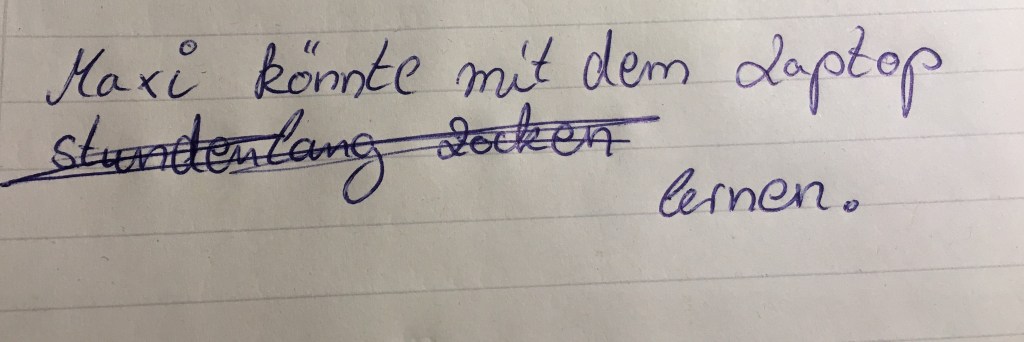 Maxi könnte mit dem Laptop
stundenlang zocken
lernen.